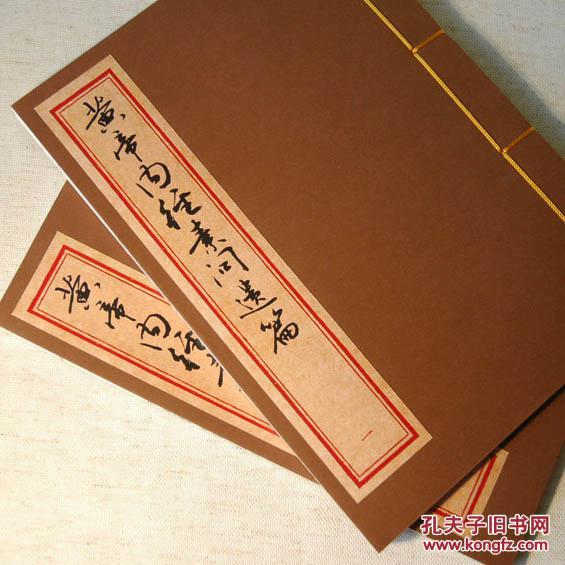 黄帝内经素问遗篇
一
黄帝内经
孔夫子旧书网
www.kongfz.com